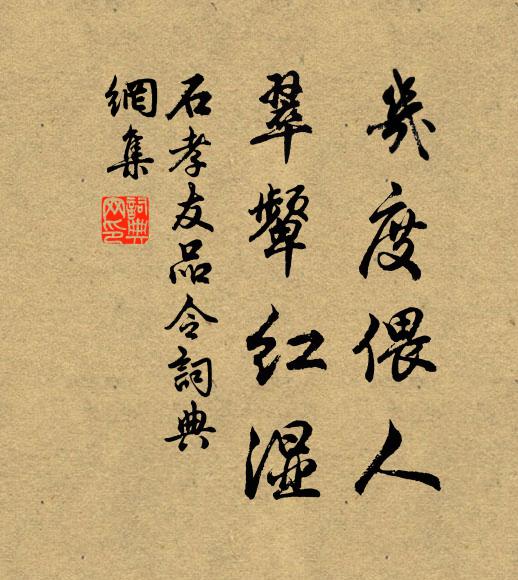 幾度偎人
翠顰紅濕
石孝友品令詞典
網集
詞典
网印